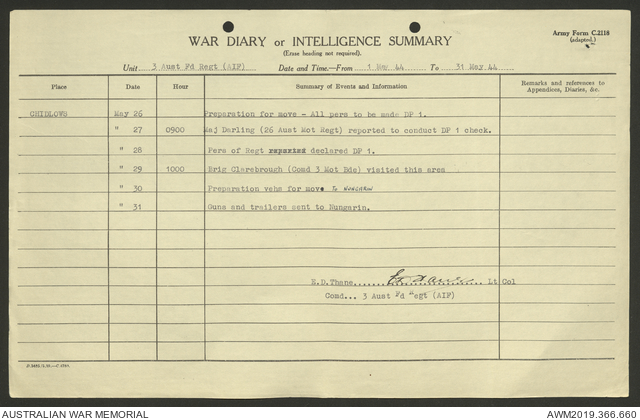 Army Form C.2118
(adapted.)
WAR DIARY or INTELLIGENCE SUMMARY
(Erase heading not required).
Unit 3 Aust Fd Regt (AIF) Date and Time.—From 1 May 44 To 31 May 44
Place Date Hour Summary of Events and Information Remarks and references to Appendices, Diaries, &c.
CHIDLOWS May 26 Preparation for move - All pers to be made DP 1.
" 27 0900 Maj Darling (26 Aust Mot Regt) reported to conduct DP 1 check.
" 28 Pers of Regt declared DP 1.
" 29 1000 Brig Clarebrough (Comd 3 Mot Bde) visited this area
" 30 Preparation vehs for move to NUNGARIN
" 31 Guns and trailers sent to Nungarin.
E.D.Thane. Lt Col
Comd... 3 Aust Fd Regt (AIF)
AUSTRALIAN WAR MEMORIAL AWM2019.366.660